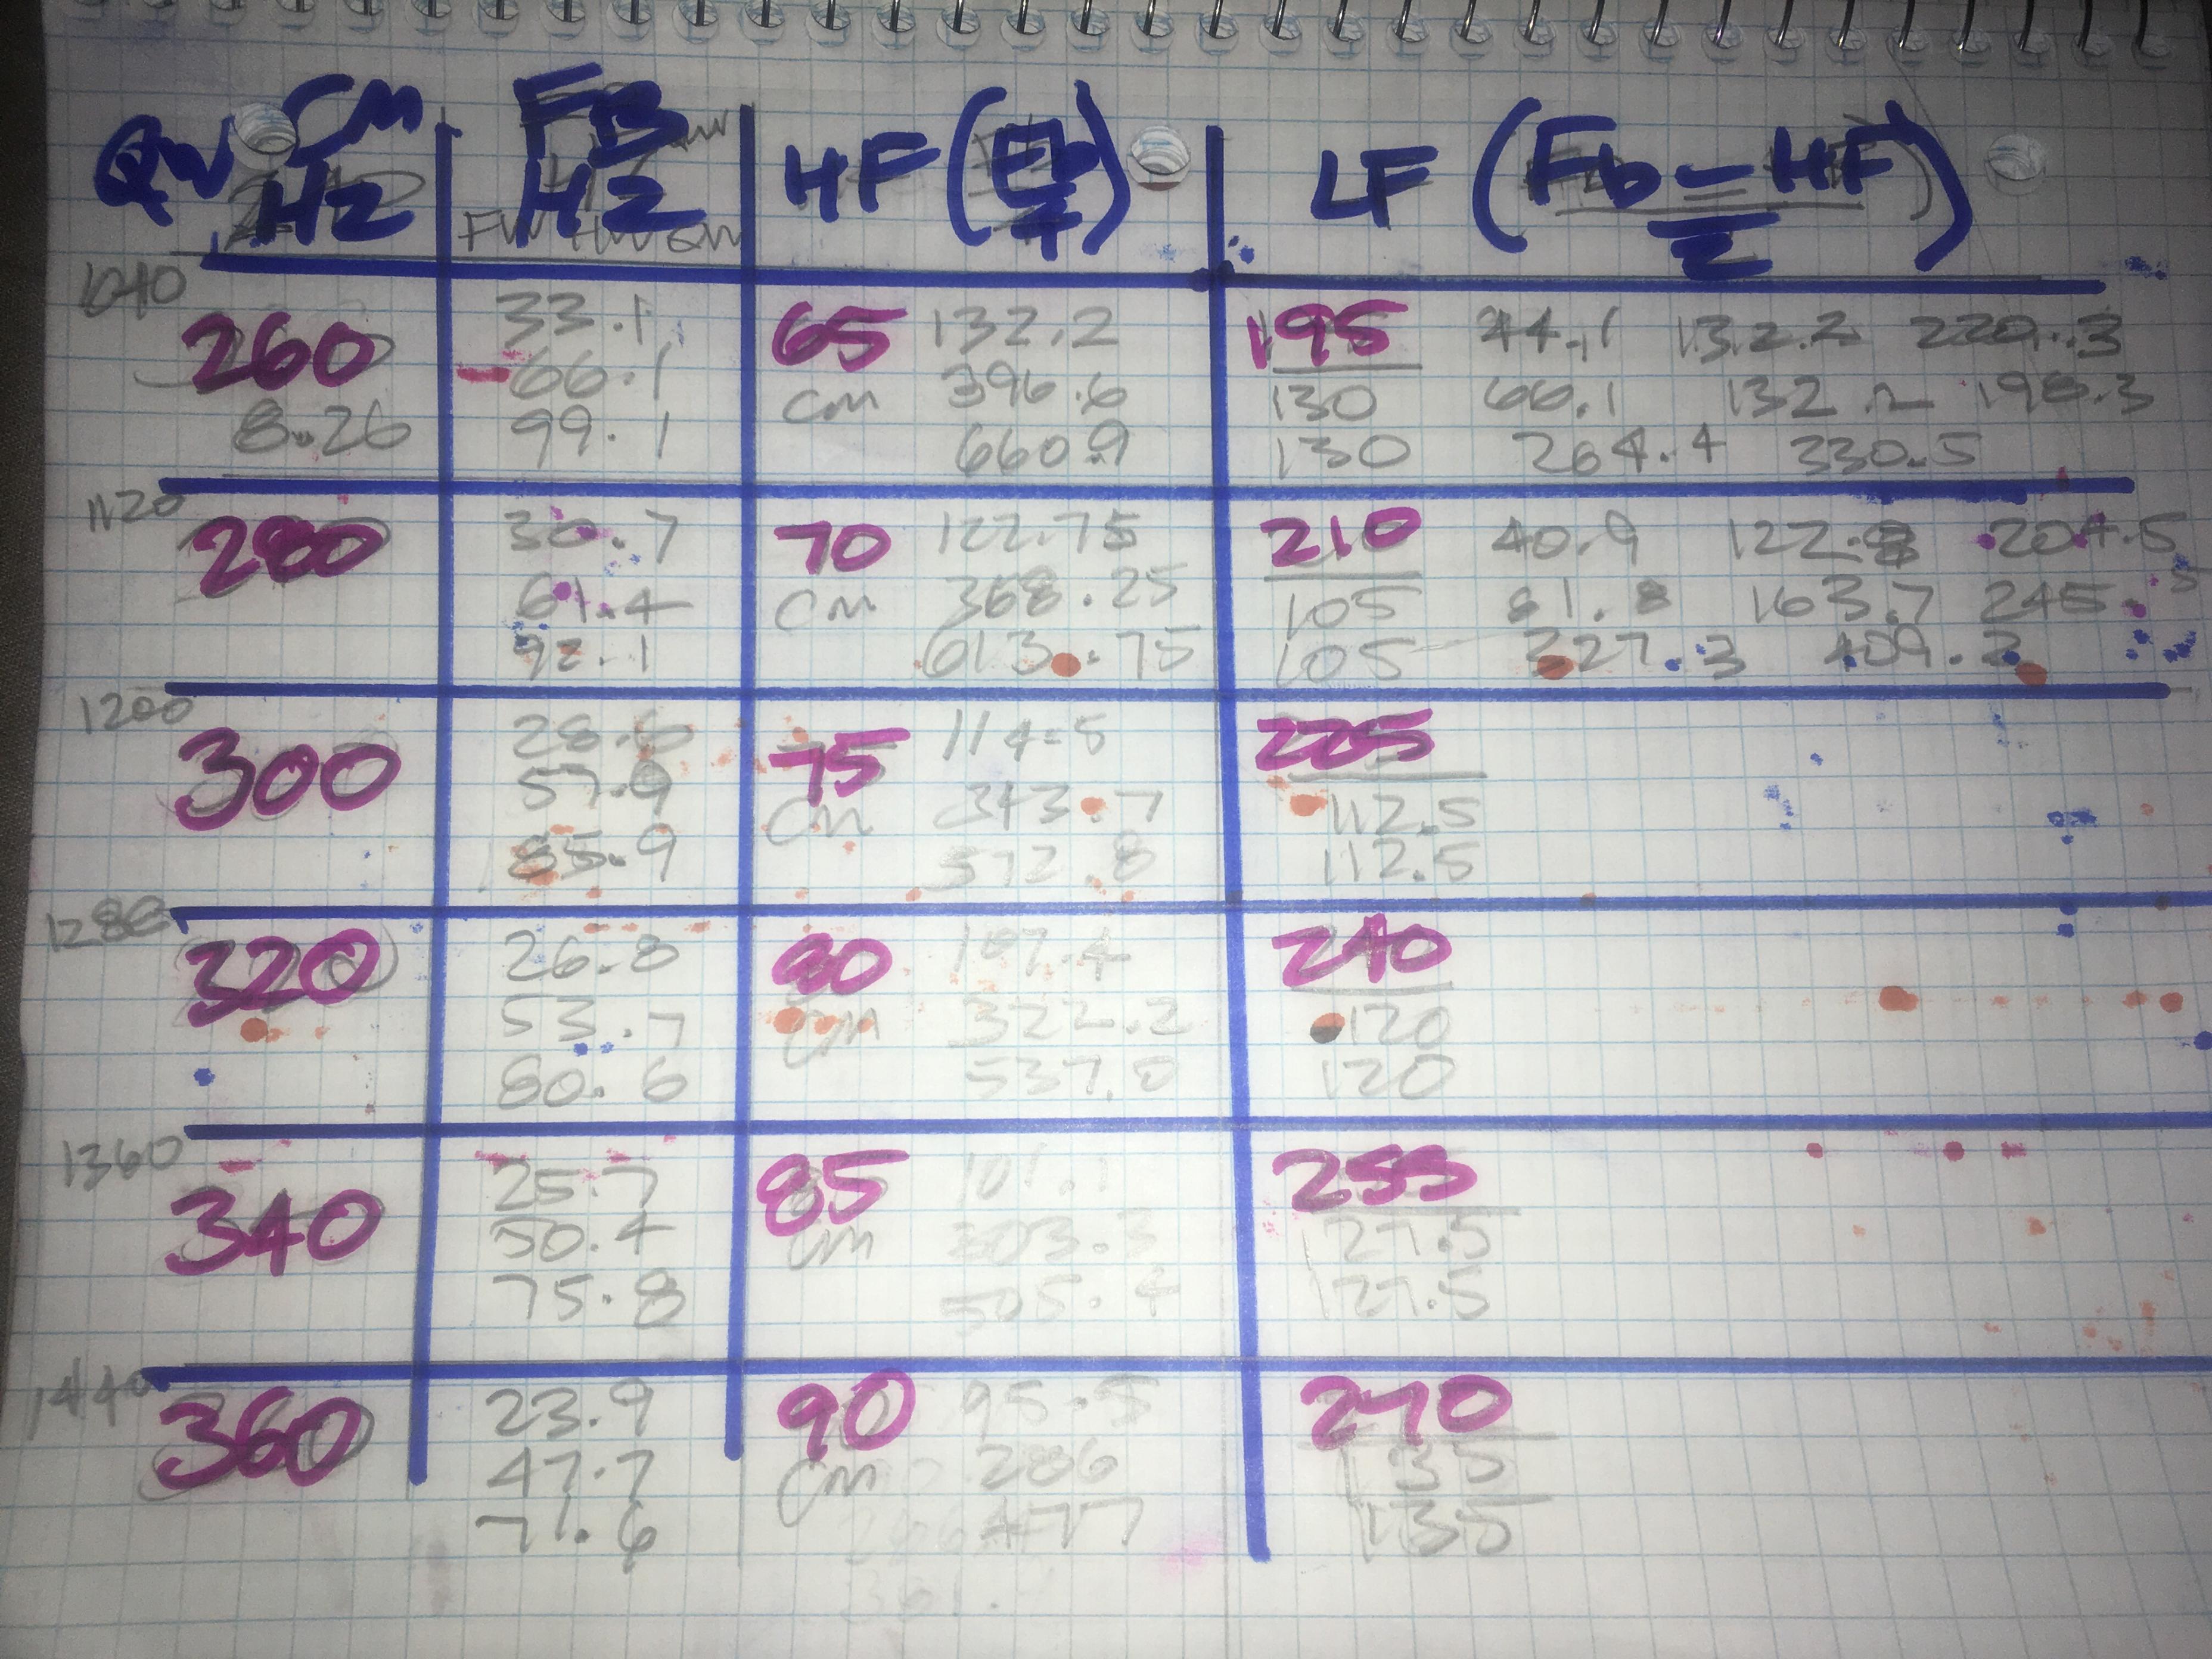 QW CM HZ FB HZ HF (Fb/4) LF (Fb-HF/2)
FW HW QW
1040
260 33.1 65 132.2 195 44.1 132.2 220.3
66.1 cm 396.6 130 66.1 132.2 198.3
8.26 99.1 660.9 130 264.4 330.5
1120
280 30.7 70 122.75 210 40.9 122.8 204.5
61.4 cm 368.25 105 81.8 163.7 245.5
92.1 613.75 105 327.3 409.2
1200
300 28.6 75 114.5 225
57.9 cm 343.7 112.5
85.9 572.8 112.5
1280
320 26.8 80 107.4 240
53.7 cm 322.2 120
80.6 537.0 120
1360
340 25.7 85 101.1 255
50.4 cm 303.3 127.5
75.8 505.4 127.5
1440
360 23.9 90 95.5 270
47.7 cm 286 135
71.6 477 135